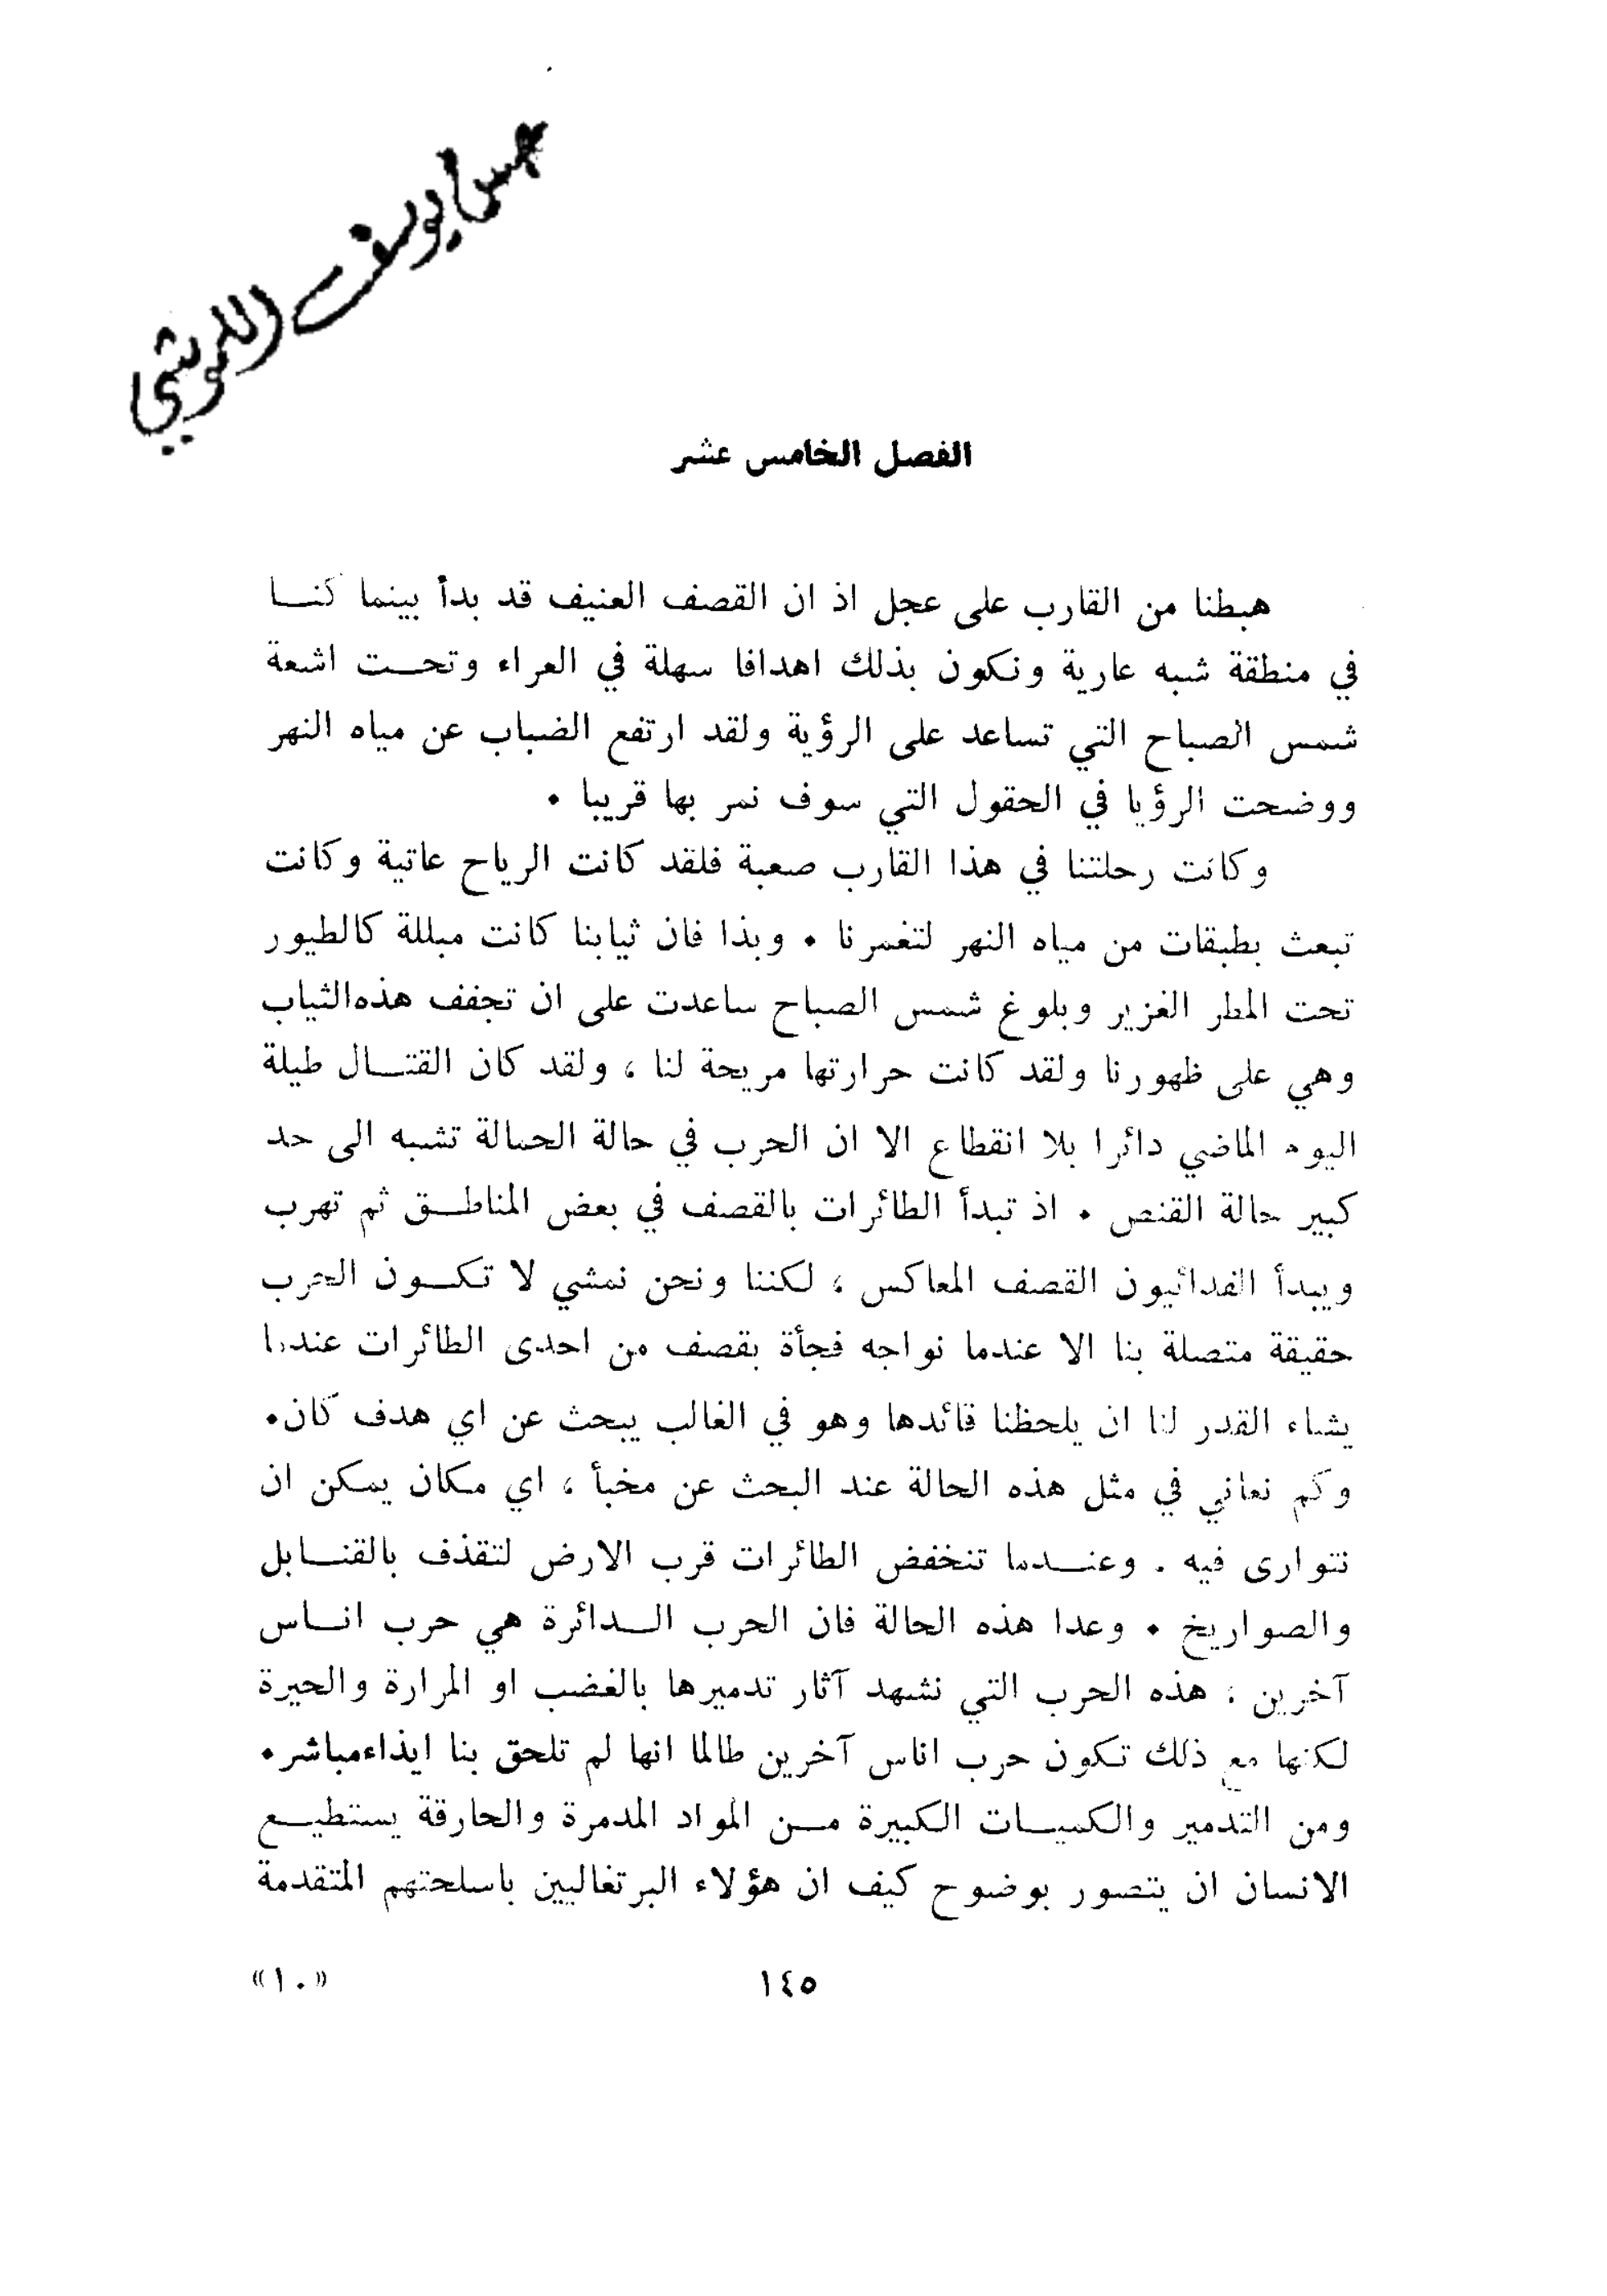 يوسف
الفصل الخامس عشر
هبطنا من القارب على عجل اذ ان القصف العنيف قد بدأ بينما كنا
في منطقة شبه عارية ونكون بذلك اهدافا سهلة في العراء وتحت اشعة
شمس الصباح التي تساعد على الرؤية ولقد ارتفع الضباب عن مياه النهر
ووضحت الرؤيا في الحقول التي سوف نمر بها قريبا .
وكانت رحلتنا في هذا القارب صعبة فلقد كانت الرياح عاتية وكانت
تبعث بطبقات من مياه النهر لتغمرنا . وبذا فان ثيابنا كانت مبللة كالطيور
تحت المطر الغزير وبلوغ شمس الصباح ساعدت على ان تجفف هذه الثياب
وهي على ظهورنا ولقد كانت حرارتها مريحة لنا ، ولقد كان القتال طيلة
اليوم الماضي دائرا بلا انقطاع الا ان الحرب في حالة الحبالة تشبه الى حد
كبير حالة القنص . اذ تبدأ الطائرات بالقصف في بعض المناطق ثم تهرب
ويبدأ الفدائيون القصف المعاكس ، لكننا ونحن نمشي لا تكون الحرب
حقيقة متصلة بنا الا عندما نواجه فجأة بقصف من احدى الطائرات عندما
يشاء القدر لنا ان يلحظنا قائدها وهو في الغالب يبحث عن اي هدف كان.
وكم نعاني في مثل هذه الحالة عند البحث عن مخبأ ، اي مكان يمكن ان
نتوارى فيه . وعندما تنخفض الطائرات قرب الارض لتقذف بالقنابل
والصواريخ . وعدا هذه الحالة فان الحرب الدائرة هي حرب اناس
آخرين : هذه الحرب التي نشهد آثار تدميرها بالغضب او المرارة والحيرة
لكنها مع ذلك تكون حرب اناس آخرين طالما انها لم تلحق بنا ايذاء مباشر.
ومن التدمير والكميات الكبيرة من المواد المدمرة والحارقة يستطيع
الانسان ان يتصور بوضوح كيف ان هؤلاء البرتغاليين باسلحتهم المتقدمة
١٤٥
«١٠»